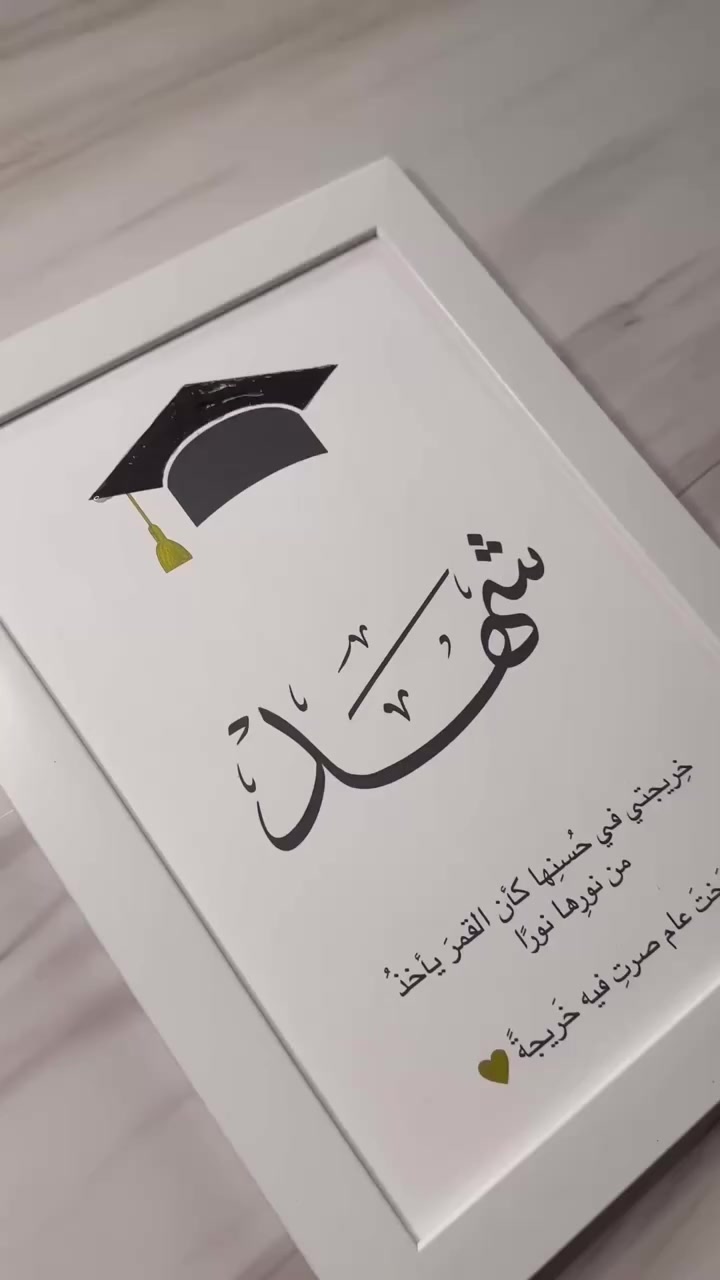 شهد
خِريجتي في حُسنِها كأن القمرَ يأخذُ
من نورِها نورًا
عام صرتِ فيه خَريجةً